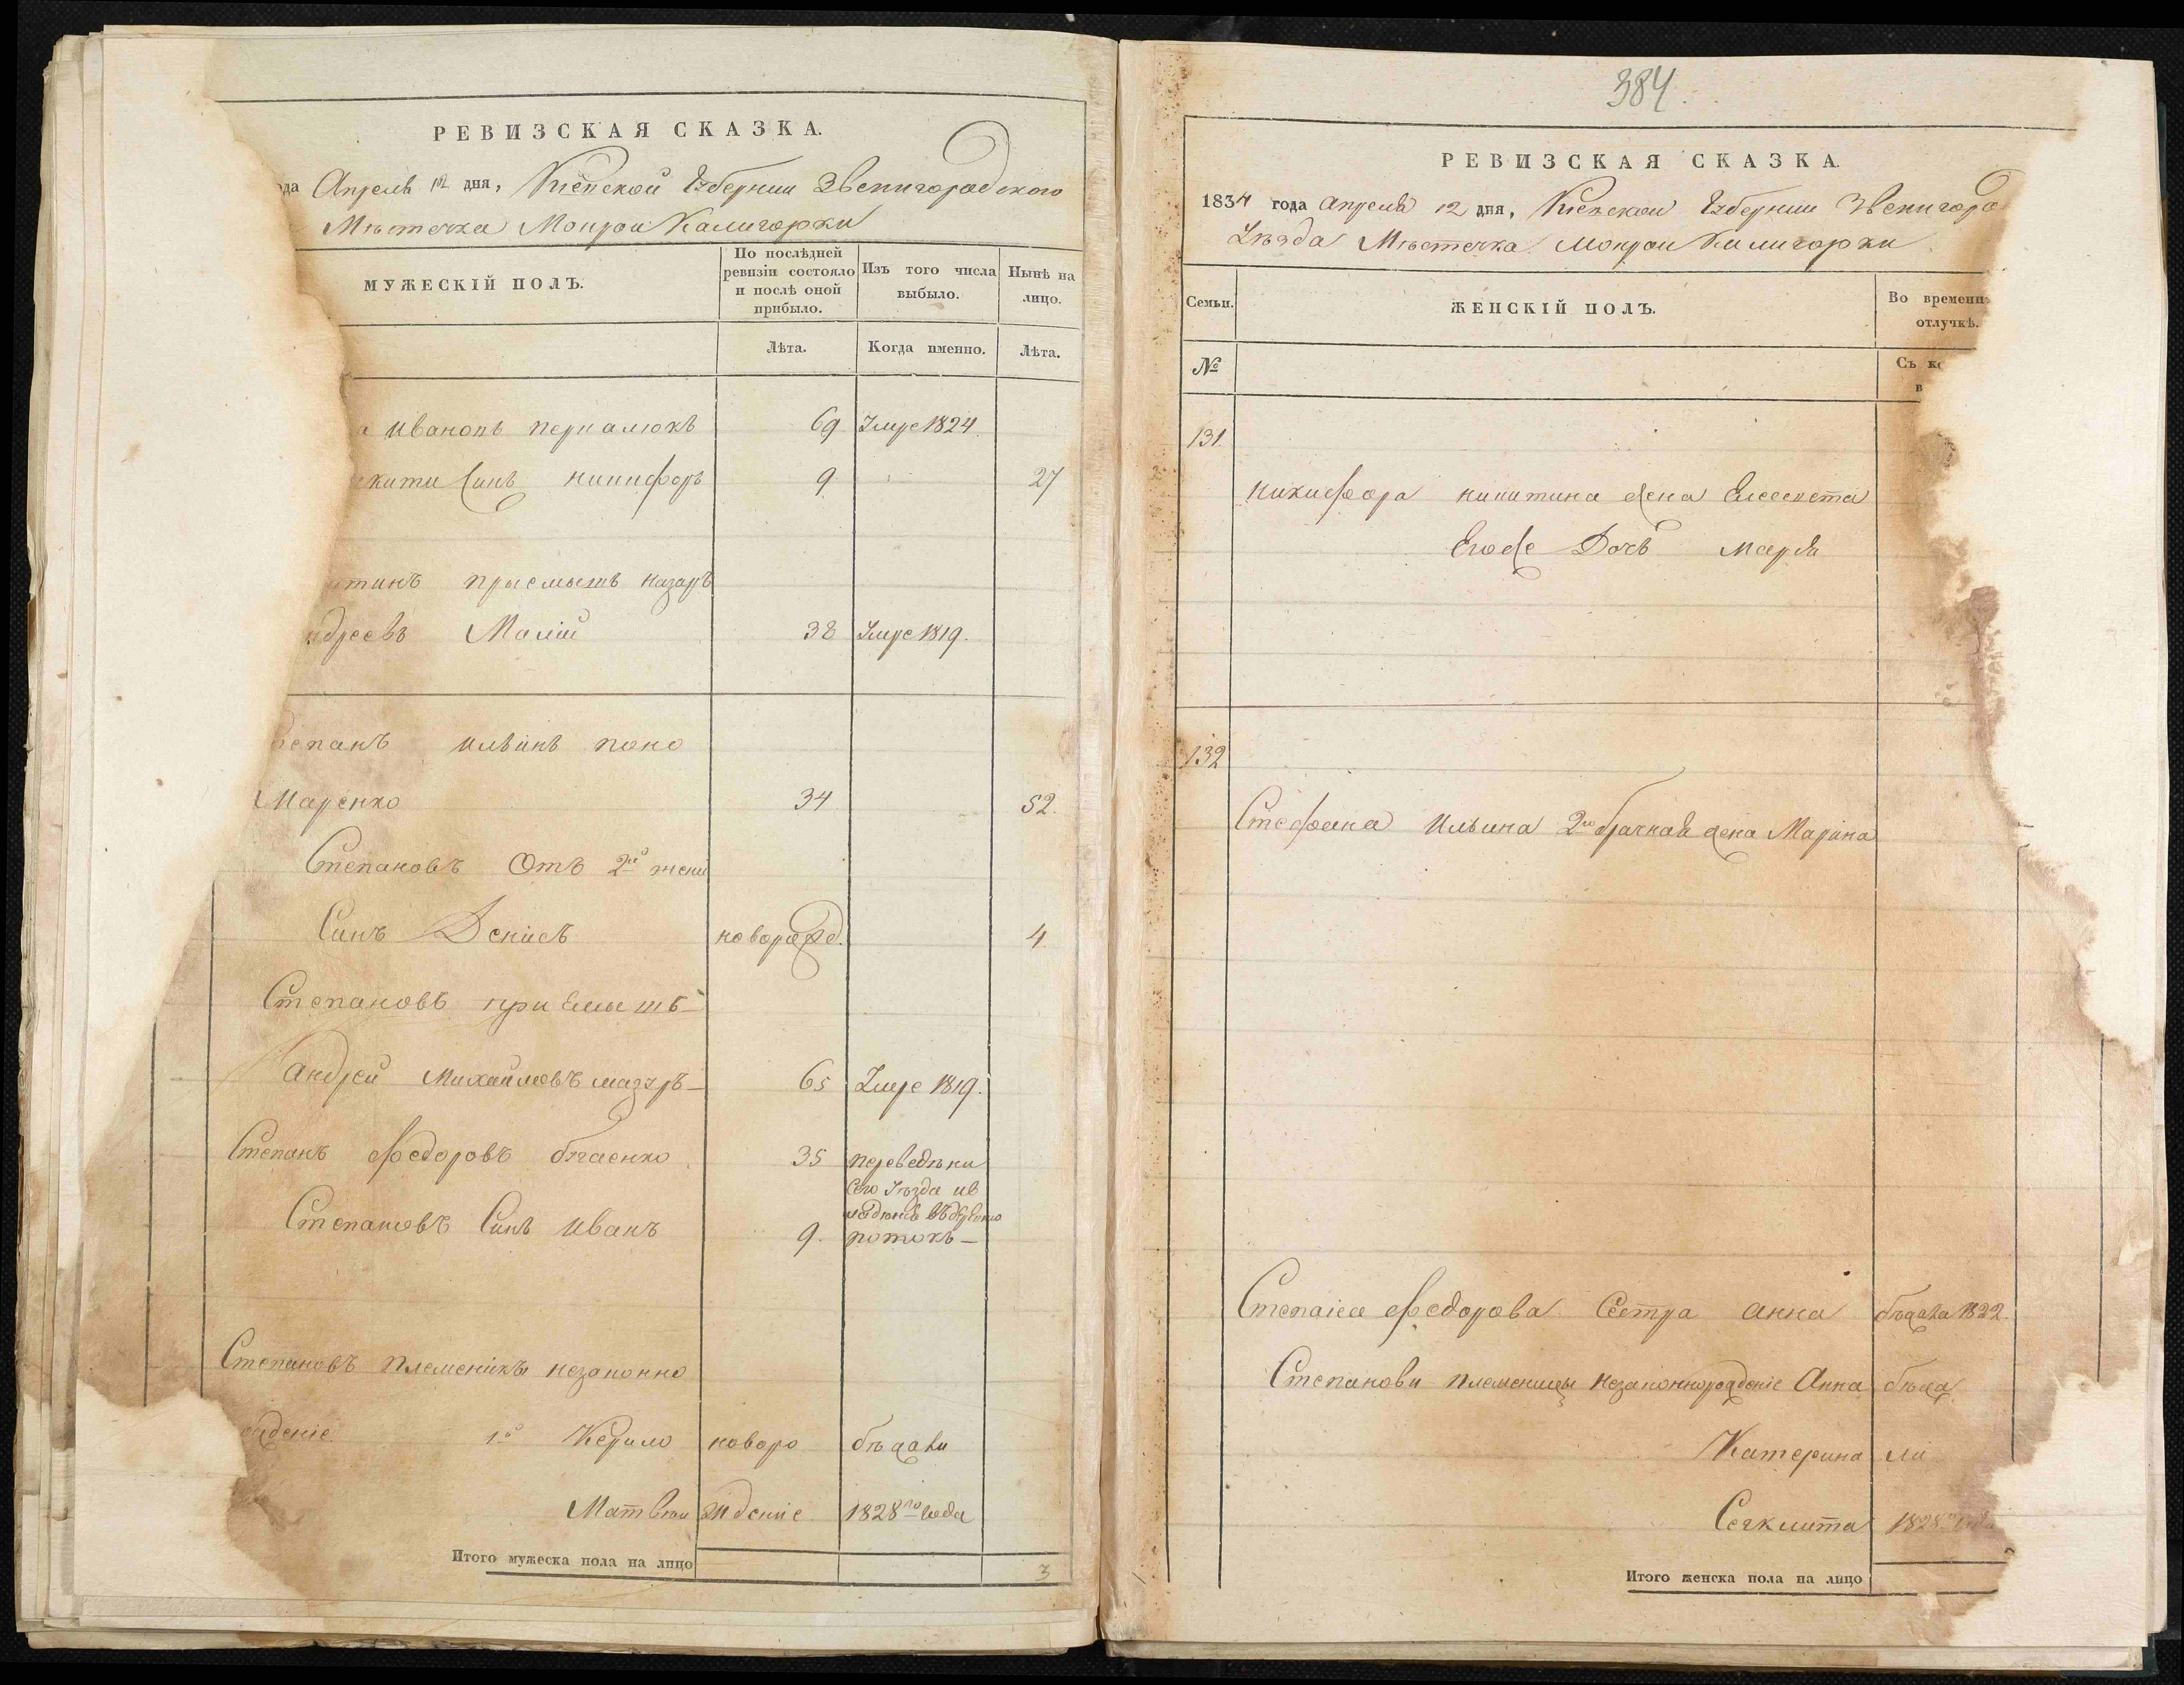 РЕВИЗСКАЯ СКАЗКА.
да Апреля 12 дня, Кіевской Губерніи Звенигородского
Мѣстечка Мокрой Калигорки
МУЖЕСКІЙ ПОЛЪ.
По послѣдней ревизіи состояло и послѣ оной прибыло.
Изъ того числа выбыло.
Нынѣ на лицо.
Лѣта.
Когда именно.
Лѣта.
а Ивановъ 69 Умре 1824
кити Синъ никифоръ 9 27
итинъ приемышъ назаръ
ндреевъ Малій 38 Умре 1819.
епанъ ильинъ поно
Маренко 34 52.
Степановъ Отъ 2й жены
Синъ Денисъ новорожд. 4
Степановъ приемышъ
андрей Михайловъ мазуръ 65 Умре 1819.
Степанъ Федоровъ 35 переведѣни
сего уѣзда
Степановъ Синъ иванъ 9. потокъ
Степановъ племеникъ незаконно
рожденіе 1й Кирило новоро бѣжали
Матвѣи жденіе 1828го года
Итого мужеска пола на лицо 3
384.
РЕВИЗСКАЯ СКАЗКА.
1834 года апреля 12 дня, Кіевской Губерніи Звенигоро
Уѣзда Мѣстечка Мокрой Калигорки
Семьи.
ЖЕНСКІЙ ПОЛЪ.
Во временн
отлучкѣ.
№
Съ ко
в
131.
никифора никитина жена Елисавета
Егоже Дочь Марія
132
Стефана Ильина 2о брачная жена Марина
Степана Федорова Сестра анна бѣжала 1822.
Степанови племеницы незаконнорожденіе Анна бѣжа
Катерина ли
1828го года
Итого женска пола на лицо